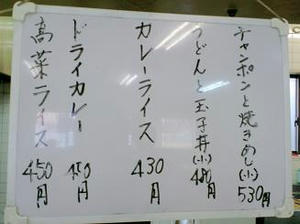 チャンポンと焼きめし(小) 530円
うどんと玉子丼(小) 480円
カレーライス 430円
ドライカレー 450円
高菜ライス 450円